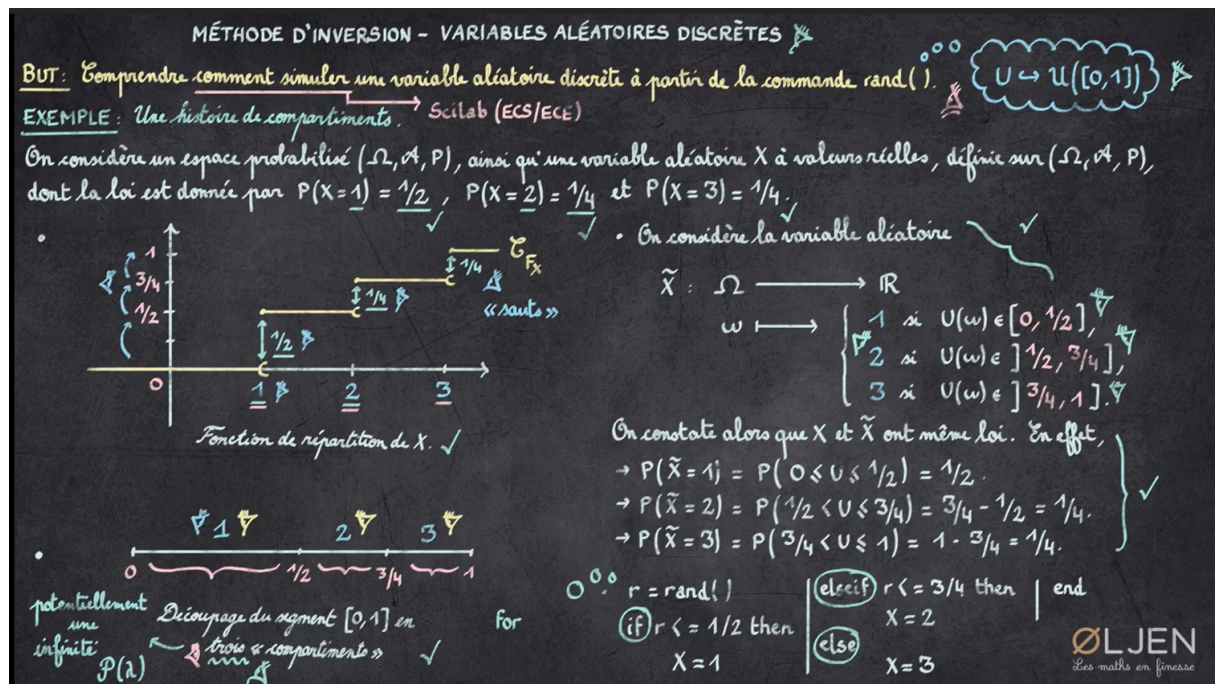 MÉTHODE D'INVERSION - VARIABLES ALÉATOIRES DISCRÈTES
BUT : Comprendre comment simuler une variable aléatoire discrète à partir de la commande rand( ).
U ↪ U([0,1])
→ Scilab (ECS/ECE)
EXEMPLE : Une histoire de compartiments.
On considère un espace probabilisé (Ω, A, P), ainsi qu'une variable aléatoire X à valeurs réelles, définie sur (Ω, A, P),
dont la loi est donnée par P(X=1) = 1/2, P(X=2) = 1/4 et P(X=3) = 1/4.
1
3/4
1/2
0
1/2
1/4
1/4
C_{F_X}
« sauts »
1 2 3
Fonction de répartition de X.
1 2 3
0 1/2 3/4 1
potentiellement
une
infinité
P(λ)
Découpage du segment [0,1] en
trois « compartiments »
• On considère la variable aléatoire
X̃ : Ω → ℝ
ω ↦
1 si U(ω) ∈ [0, 1/2],
2 si U(ω) ∈ ]1/2, 3/4],
3 si U(ω) ∈ ]3/4, 1].
On constate alors que X et X̃ ont même loi. En effet,
→ P(X̃=1) = P(0 ≤ U ≤ 1/2) = 1/2.
→ P(X̃=2) = P(1/2 < U ≤ 3/4) = 3/4 - 1/2 = 1/4.
→ P(X̃=3) = P(3/4 < U ≤ 1) = 1 - 3/4 = 1/4.
For
r = rand()
if r <= 1/2 then
X = 1
elseif r <= 3/4 then
X = 2
else
X = 3
end
ØLJEN
Les maths en finesse